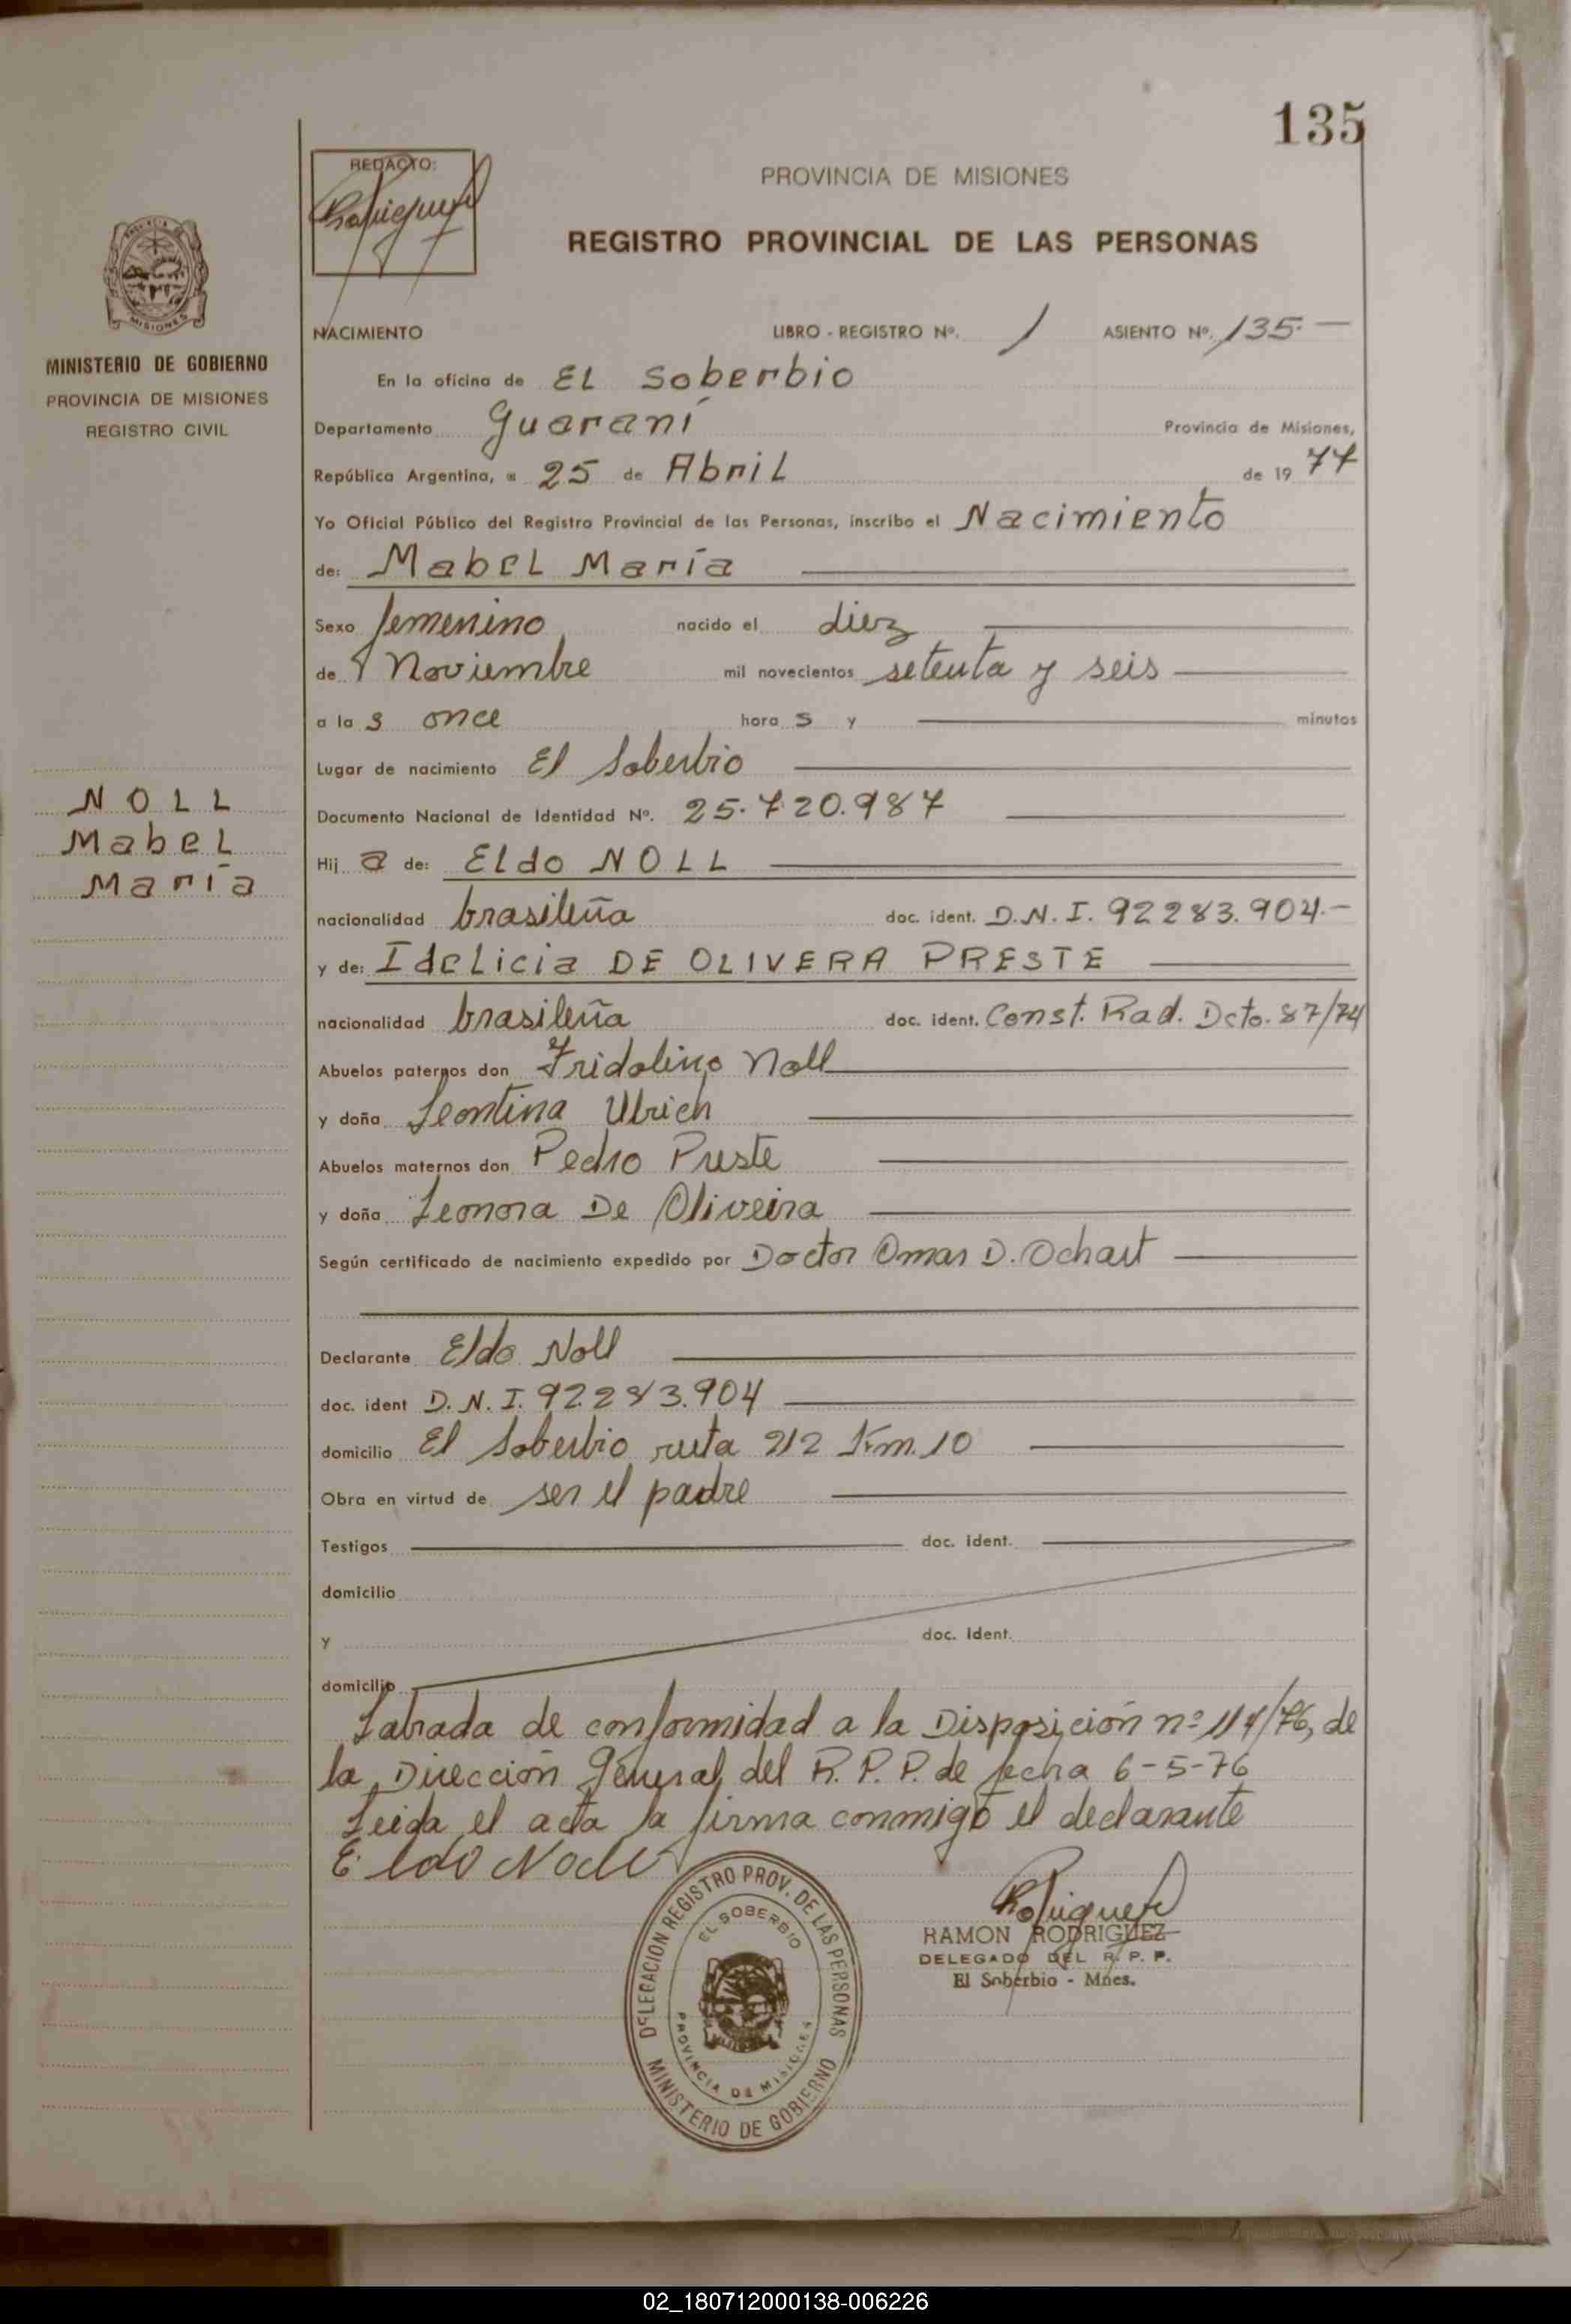 135
REDACTO:
PROVINCIA DE MISIONES
REGISTRO PROVINCIAL DE LAS PERSONAS
MISIONES
MINISTERIO DE GOBIERNO
PROVINCIA DE MISIONES
REGISTRO CIVIL
NACIMIENTO LIBRO - REGISTRO Nº. 1 ASIENTO Nº. 135.—
En la oficina de EL Soberbio
Departamento Guaraní Provincia de Misiones,
República Argentina, a 25 de AbriL de 19 77
Yo Oficial Público del Registro Provincial de las Personas, inscribo el Nacimiento
de: MabeL María
Sexo femenino nacido el diez
de Noviembre mil novecientos setenta y seis
a la s once hora s y minutos
Lugar de nacimiento El Soberbio
Documento Nacional de Identidad Nº. 25.720.987
NOLL
MabeL
María
Hij a de: ELdo NOLL
nacionalidad brasileña doc. ident. D.N.I. 92283.904.-
y de: IdeLicia DE OLIVERA PRESTE
nacionalidad brasileña doc. ident. Const. Rad. Dcto. 87/74
Abuelos paternos don Fridolino Noll
y doña Leontina Ulrich
Abuelos maternos don Pedro Preste
y doña Leonora De Oliveira
Según certificado de nacimiento expedido por Doctor Omar D. Ochart
Declarante Eldo Noll
doc. ident D.N.I. 92.283.904
domicilio El Soberbio ruta 212 Km. 10
Obra en virtud de ser el padre
Testigos doc. ident.
domicilio
y doc. ident.
domicilio
Labrada de conformidad a la Disposición nº 114/76, de
la Dirección General del R.P.P. de fecha 6-5-76
Leida el acta la firma conmigo el declarante
Eldo Noll
DELEGACION REGISTRO PROV. DE LAS PERSONAS
EL SOBERBIO
PROVINCIA DE MISIONES
MINISTERIO DE GOBIERNO
RAMON RODRIGUEZ
DELEGADO DEL R. P. P.
El Soberbio - Mnes.
02_180712000138-006226